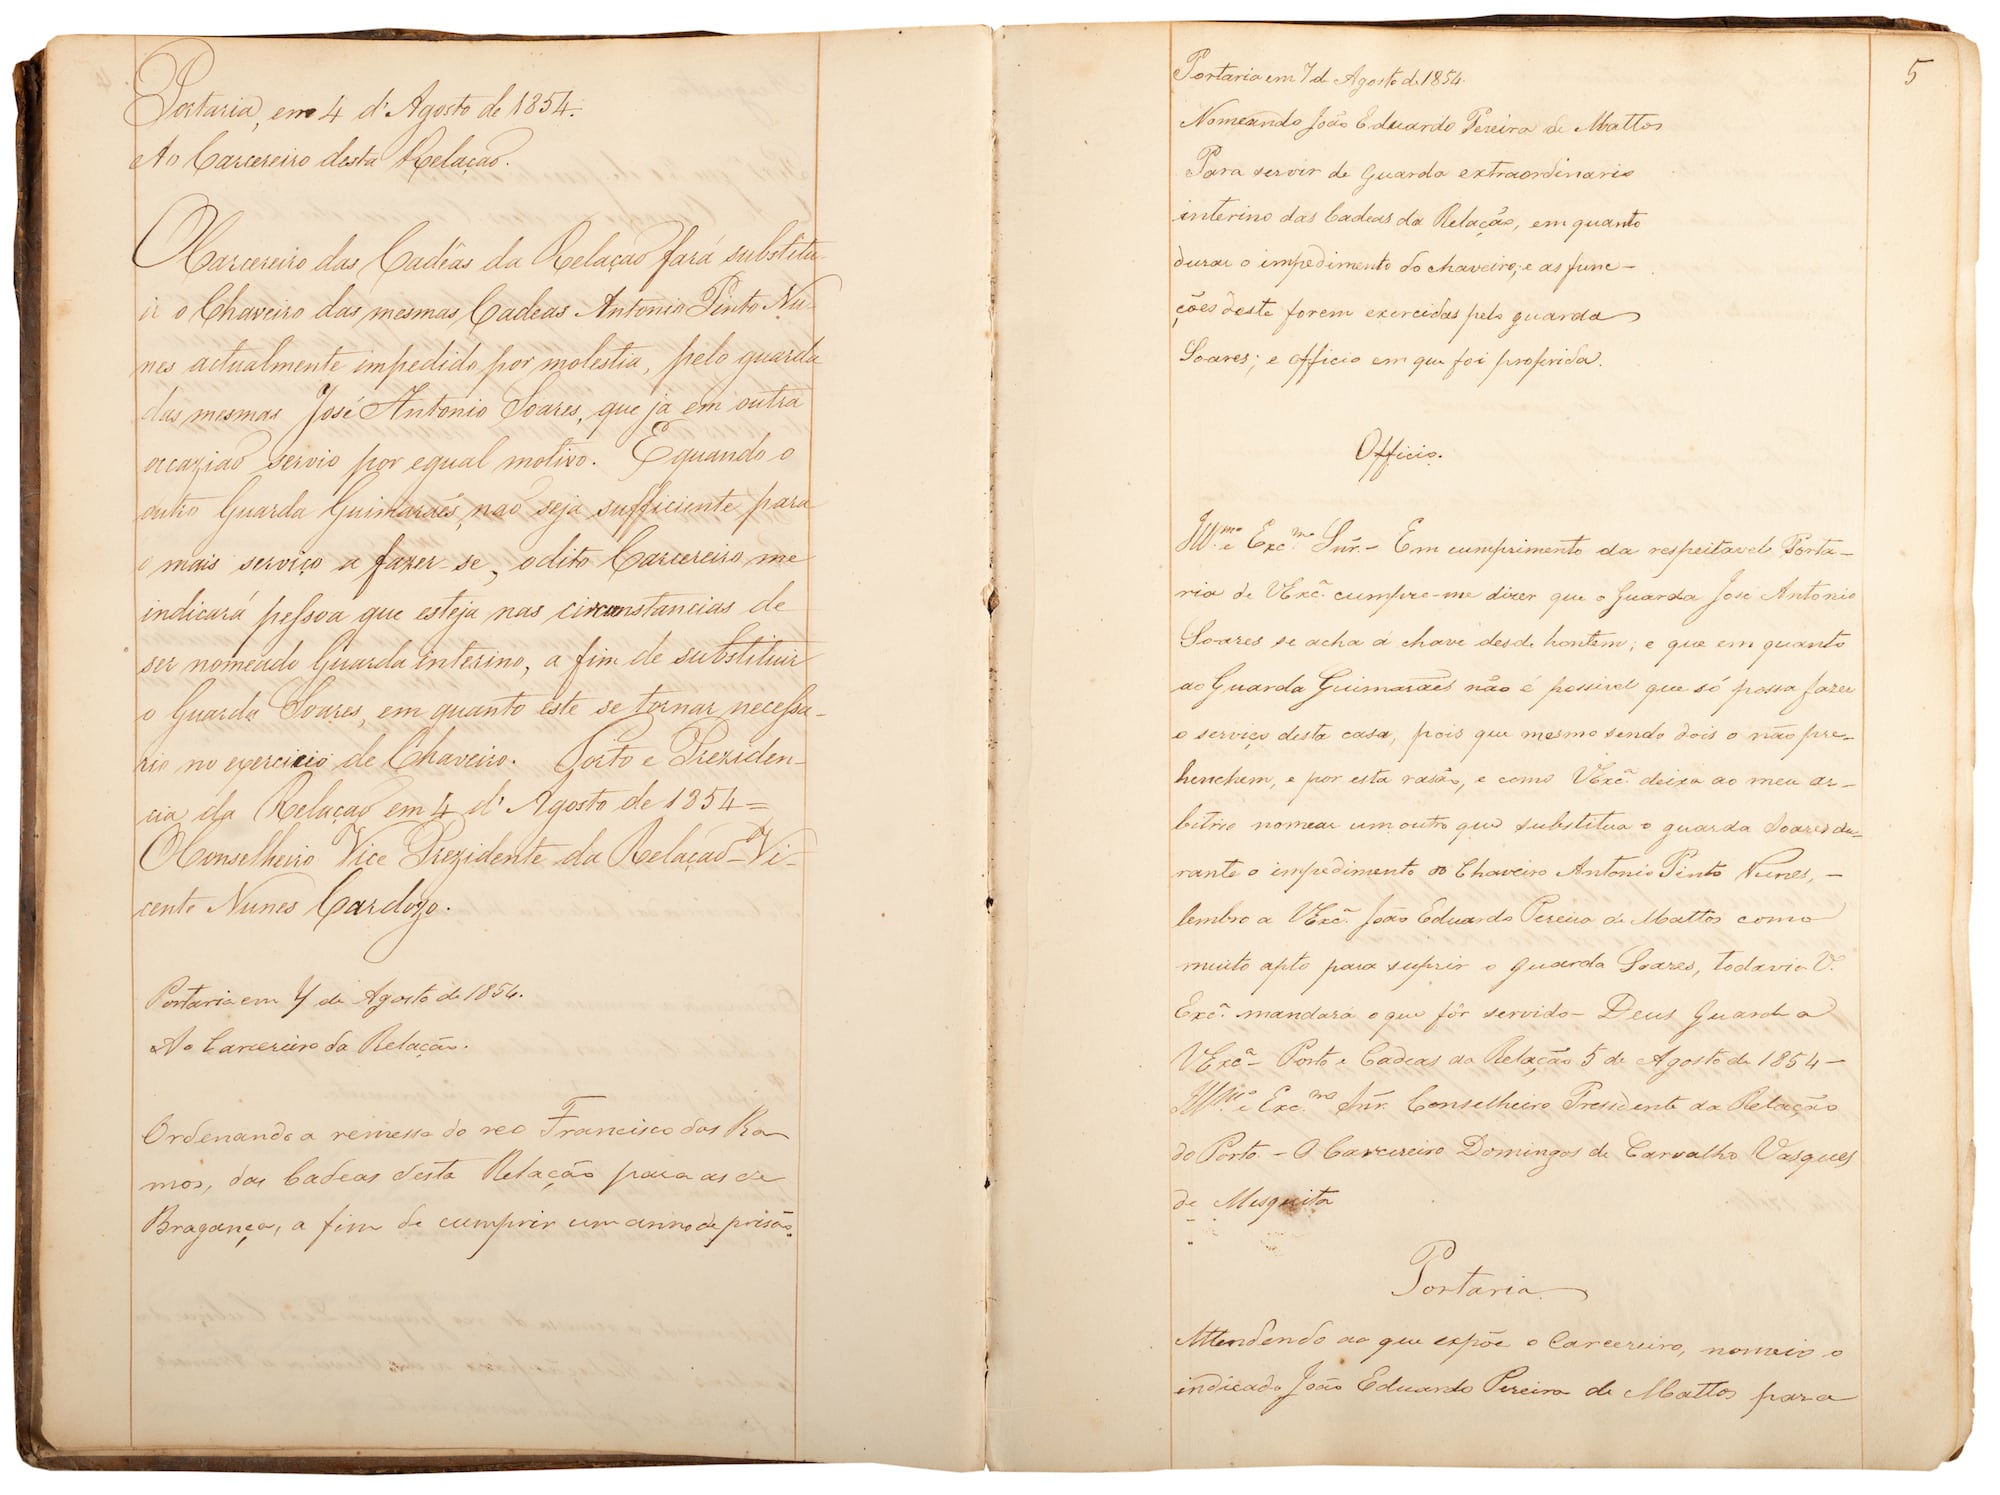 Portaria, em 4 d'Agosto de 1854.
Ao Carcereiro desta Relação.
O Carcereiro das Cadêas da Relação fará substitu-
ir o Chaveiro das mesmas Cadeas Antonio Pinto Nu-
nes actualmente impedido por molestia, pelo guarda
das mesmas José Antonio Soares, que ja em outra
occazião servio por egual motivo. E quando o
outro Guarda Guimarães, não seja sufficiente para
o mais serviço a fazer-se, o dito Carcereiro me
indicará pessoa que esteja nas circunstancias de
ser nomeado Guarda interino, a fim de substituir
o Guarda Soares, em quanto este se tornar necessa-
rio no exercicio de Chaveiro. Porto e Preziden-
cia da Relação em 4 d'Agosto de 1854=
O Conselheiro Vice Prezidente da Relação-Vi-
cente Nunes Cardozo.
Portaria em 7 de Agosto de 1854.
Ao Carcereiro da Relação.
Ordenando a remessa do reo Francisco dos Ra-
mos, das Cadeas desta Relação para as de
Bragança, a fim de cumprir um anno de prisão.
5
Portaria em 7 de Agosto de 1854.
Nomeando João Eduardo Pereira de Mattos
Para servir de Guarda extraordinario
interino das Cadeas da Relação, em quanto
durar o impedimento do chaveiro; e as func-
ções deste forem exercidas pelo guarda
Soares; e officio em que foi proferida.
Officio.
Ill.mo e Exc.mo Snr. - Em cumprimento da respeitavel Porta-
ria de VExc.ª cumpre-me dizer que o Guarda José Antonio
Soares se acha á chave desde hontem; e que em quanto
ao Guarda Guimarães não é possivel que só possa fazer
o serviço desta casa, pois que mesmo sendo dois o não pre-
henchem, e por esta rasão, e como VExc.ª deixa ao meu ar-
bitrio nomear um outro que substitua o guarda Soares du-
rante o impedimento do Chaveiro Antonio Pinto Nunes, -
lembro a VExc.ª João Eduardo Pereira de Mattos como
muito apto para suprir o guarda Soares, todavia V.
Exc.ª mandará o que fôr servido - Deus Guarde a
VExc.ª - Porto e Cadeas da Relação 5 de Agosto de 1854 -
Ill.mo e Exc.mo Snr. Conselheiro Presidente da Relação
do Porto. - O Carcereiro Domingos de Carvalho Vasques
de Mesquita
Portaria
Attendendo ao que expõe o Carcereiro, nomeio o
indicado João Eduardo Pereira de Mattos para